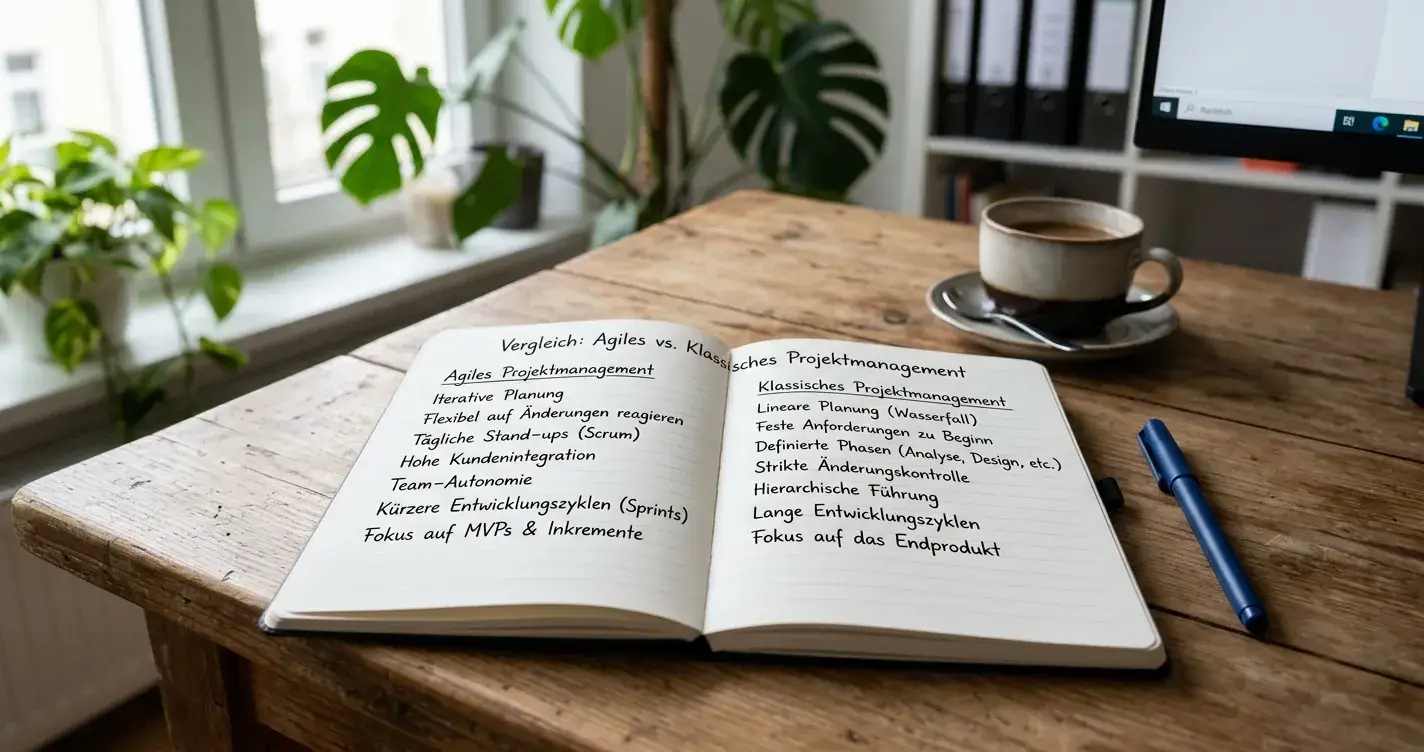 Vergleich: Agiles vs. Klassisches Projektmanagement
Agiles Projektmanagement
Iterative Planung
Flexibel auf Änderungen reagieren
Tägliche Stand-ups (Scrum)
Hohe Kundenintegration
Team-Autonomie
Kürzere Entwicklungszyklen (Sprints)
Fokus auf MVPs & Inkremente
Klassisches Projektmanagement
Lineare Planung (Wasserfall)
Feste Anforderungen zu Beginn
Definierte Phasen (Analyse, Design, etc.)
Strikte Änderungskontrolle
Hierarchische Führung
Lange Entwicklungszyklen
Fokus auf das Endprodukt